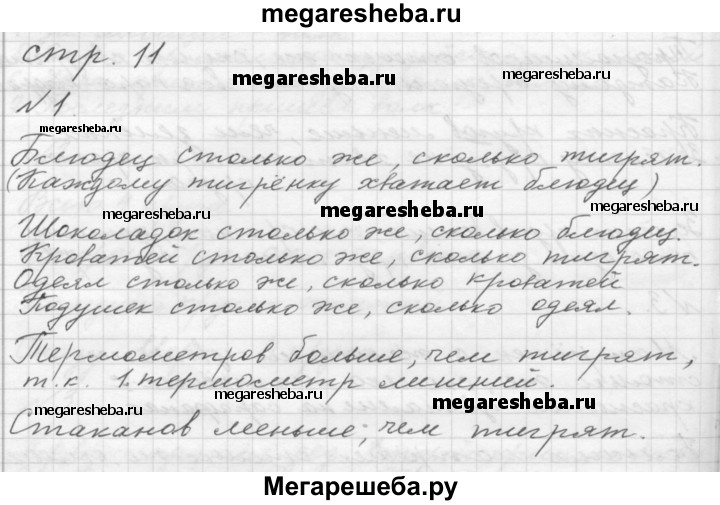 megaresheba.ru
стр. 11
megaresheba.ru
№1
megaresheba.ru
Блюдец столько же, сколько тигрят.
(Каждому тигрёнку хватает блюдец)
megaresheba.ru
megaresheba.ru
megaresheba.ru
Шоколадок столько же, сколько блюдец.
Кроватей столько же, сколько тигрят.
Одеял столько же, сколько кроватей
Подушек столько же, сколько одеял.
Термометров больше, чем тигрят,
т.к. 1 термометр лишний.
megaresheba.ru
megaresheba.ru
Стаканов меньше, чем тигрят.
megaresheba.ru
megaresheba.ru
Мегарешеба.ру